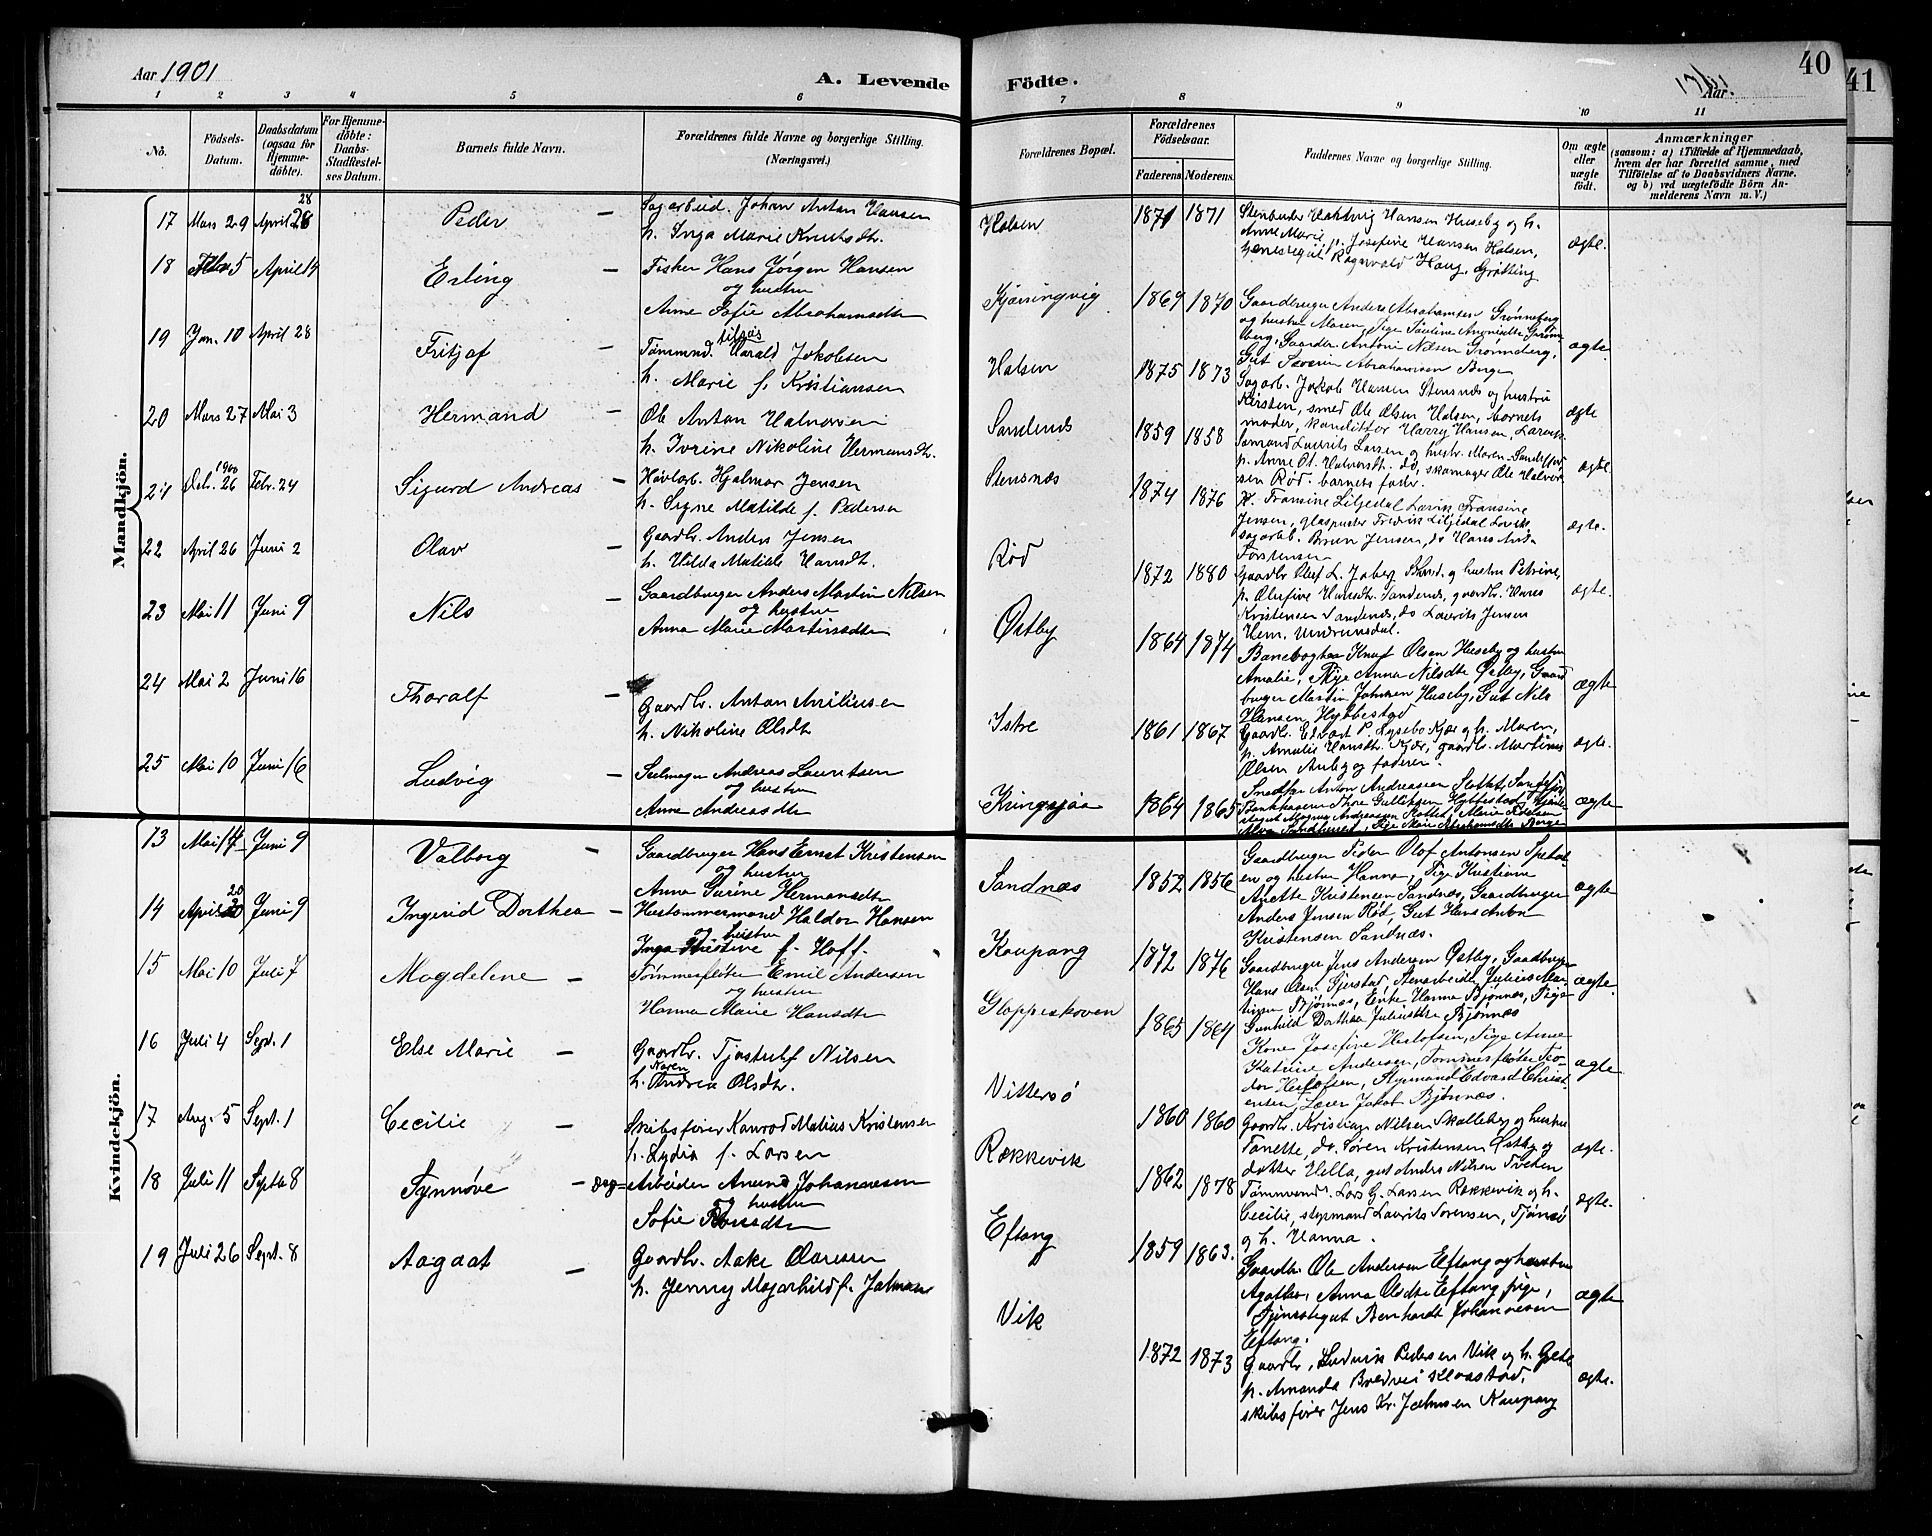 Aar 1901
A. Levende
Födte.
40
41
Aar
1 2 3 4 5 6 7 8 9 10 11
No.
Födsels-Datum.
Daabsdatum (ogsaa for Hjemmedöbte).
For Hjemmedöbte: Daabs-Stadfæstelses Datum.
Barnets fulde Navn.
Forældrenes fulde Navne og borgerlige Stilling. (Næringsvei.)
Forældrenes Bopæl.
Forældrenes Födselsaar.
Faderens. Moderens.
Faddernes Navne og borgerlige Stilling.
Om ægte eller uægte födt.
Anmærkninger
(saasom: a) i Tilfælde af Hjemmedaab, hvem der har forrettet samme, med Tilföielse af to Daabsvidners Navne, og b) ved uægtefödte Börn Anmelderens Navn m. V.)
Mandkjön.
17 Mars 29 April 28 Peder – Sagarbeid. Johan Anton Hansen
h. Inga Marie Knutsdtr.
Halsen 1871 1871
Hansen Huseby og h.
Anne Marie, p. Josefine Hansen Halsen,
Ragnvald Haug, Grøtting
ægte.
18 Febr 5 April 14 Erling – Fisker Hans Jørgen Hansen
og hustru
Anne Sofie Abrahamsdtr
Kjærringvig 1869 1870
Gaardbruger Anders Abrahamsen Grønneberg
og hustru Maren, Pige Pauline
berg, Gaardbr. Anton Nilsen Grønneberg,
Gut Severin Abrahamsen Berge
ægte.
19 Jan. 10 April 28 Fritjof – Tømmmd. Harald Jakobsen
h. Marie f. Kristiansen
Halsen 1875 1873
Sagarb. Jakob Hansen Stensnæs og hustru
Kirsten, smed Ole Olsen Halsen, barnets
moder, konditor Harry Hansen, Larvik
ægte
20 Mars 27 Mai 3 Hermand – Ole Anton Halvorsen
h. Ivrine Nikoline Hermansdtr.
Sandnæs 1859 1858
Sømand Laurits Larsen og hustr. Maren Sandefjord
p. Anne Ot. Halvorsdtr. do, skomager Ole Halvor-
sen Rød. barnets fader.
ægte.
21 Deb. 26 1900 Febr. 24 Sigurd Andreas – Høvlarb. Hjalmar Jensen
h. Signe Matilde f. Pedersen
Stensnæs 1874 1876
Fransine Liljedal Larvik Fransine
Jensen, glaspuster Fredrik Liljedal Larvik,
sagarb. Brun Jensen, do Hans And.
Torstensen
ægte.
22 April 26 Juni 2 Olav – Gaardbr. Anders Jensen
h. Hilda Matilde Hansdtr.
Rød 1872 1880
Gaardbr Oluf L. Joberg og hustru Petrine,
p. Olefine Hansdtr. Sandnæs, gaardbr. Hans
Kristensen Sandnæs, do Laurits Jensen
Hem, Undrumsdal.
ægte.
23 Mai 11 Juni 9 Nils – Gaardbruger Anders Martin Nilsen
og hustru
Anna Marie Martinsdtr
Østby 1864 1874
Banevogter Knut Olsen Huseby og hustru
Amalie, Pige Anna Nilsdtr Østby, Gaard
bruger Martin Johnsen Huseby, Gut Nils
Hansen Hybbestad
ægte
24 Mai 2 Juni 16 Thoralf – Gaardbr. Anton Amliusen
h. Nikoline Olsdtr
Istre 1861 1867
Gaardbr. Edvart P. Lysebo Kjær og h. Maren,
p. Amalie Hansdtr. Kjær, gaardbr. Martinus
Olsen Auby og faderen.
ægte.
25 Mai 10 Juni 16 Ludvig – Seilmager Andreas Lauritsen
og hustru
Anne Andreasdtr
Kringsjaa 1864 1865
Anton Andreassen Slottet, Sandefj.
Gulliksen Hybbestad
Alva Sandhuset, Pige Marie Abrahamsdtr Berge
ægte
Kvindekjön.
13 Mai 14 Juni 9 Valborg – Gaardbruger Hans Ernst Kristensen
og hustru
Anna Gurine Hermansdtr
Sandnæs 1852 1856
Gaardbruger Peder Olof Antonsen
en og hustru Hanna, Pige Kristiane
Anette Kristensen Sandnæs, Gaardbruger
Anders Jensen Rød, Gut Hans Anton
Kristensen Sandnæs.
ægte
14 April 20 Juni 9 Ingerid Dorthea – Hustømmermand Haldor Hansen
og hustru
Inga Kristine f. Hoff.
Kaupang 1872 1876
Gaardbruger Jens Andersen Østby, Gaardbruger
Hans Olsen Gjerstad, Stenarbeider Julius Mar-
tinsen Bjønnes, Enke Hanna Bjønnes, Pige
Gunhild Dorthea Juliusdtr Bjønnes
ægte.
15 Mai 10 Juli 7 Magdelene – Tømmerfløter Emil Andersen
og hustru
Hanna Marie Hansdtr
Gloppeskoven 1865 1864
Kone Josefine Herlofsen, Pige Anne
Katrine Andersen, Tømmerfløter Teo-
dor Herlofsen, Styrmand Edvard Christ
ensen, Lærer Jakob Bjønnes.
ægte
16 Juli 4 Sept. 1 Else Marie – Gaardbr. Tjøstulf Nilsen
h. Karen Andrea Olsdtr.
Vittersø 1860 1860
Gaardbr. Kristian Nilsen Skalleberg og hustru
Tanette, do. Søren Kristensen Østby og
datter Hella, gut Anders Nilsen Tveten
ægte.
17 Aug. 5 Sept. 1 Cecilie – Skibsfører Konrad Matius Kristensen
h. Lydia f. Larsen
Rækkevik 1862 1878
Tømmermd. Lars G. Larsen Rækkevik og h.
Cecilie, styrmand Laurits Sørensen, Tjønsø
og h. Hanna.
ægte.
18 Juli 11 Septbr 8 Synnøve – Dag=Arbeider Anund Johannesen
og hustru
Sofie
Eftang 1859 1863.
Gaardbr. Ole Andersen Eftang og hustru
Agathe, Anna Olsdtr Eftang pige,
Tjenestegut Bernhardt Johannesen
Eftang.
ægte
19 Juli 26 Sept. 8 Aagaat – Gaardbr. Aake Claessen
h. Jenny Magnhild f. Jahnsen
Vik 1872 1873
Gaardbr. Ludvik Pedersen Vik og h. Grete
p. Amanda Bredvei Klaastad,
skibsfører Jens Kr. Jahnsen Kaupang
ægte.